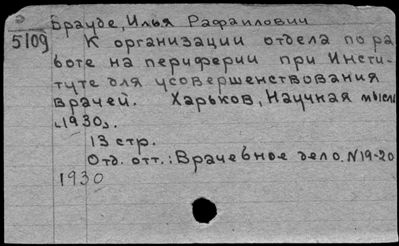 Э Брауде, Илья Рафаилович
5109 К организации отдела по ра
боте на периферии при Инсти-
туте для усовершенствования
врачей. Харьков, Научная мысль
"1930".
13 стр.
Отд. отт.: Врачебное дело. N19-20
1930